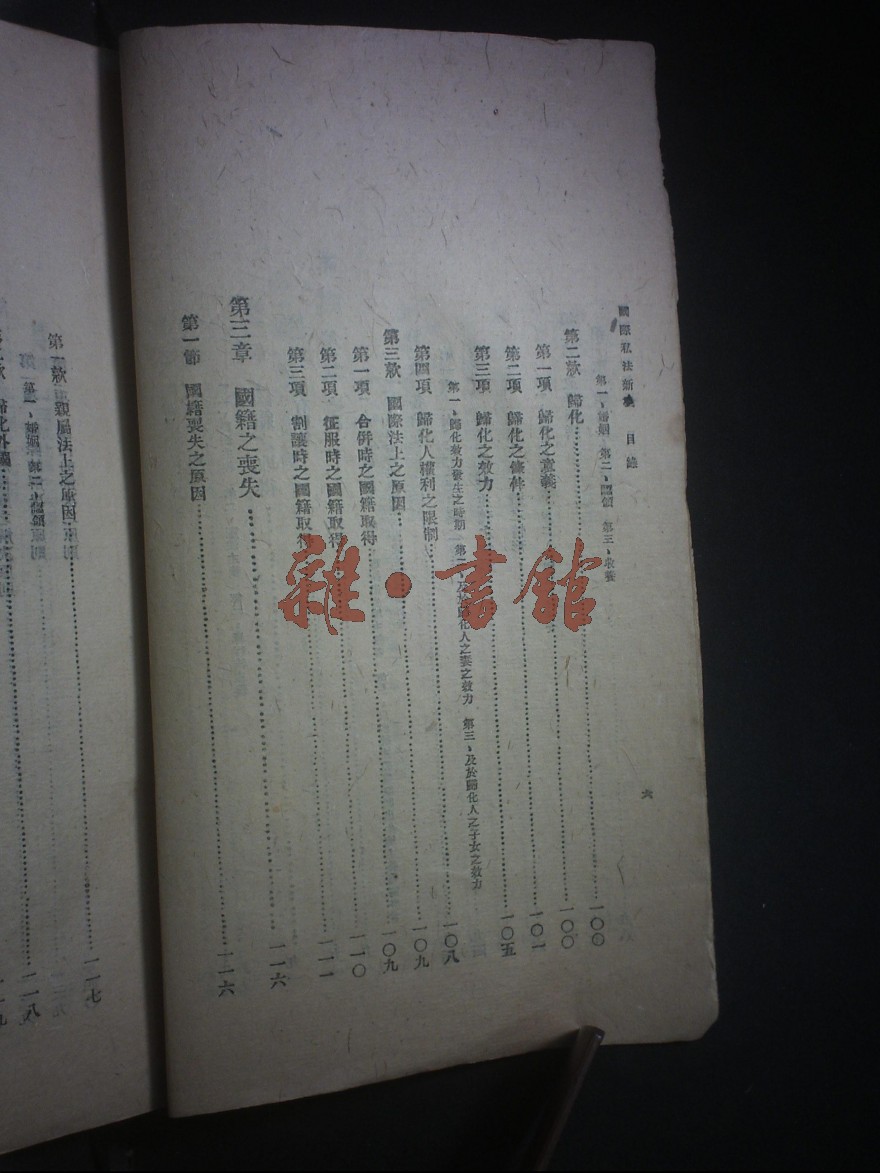 國際私法新 目錄
六
第一、婚姻 第二、認領 第三、收養
第二款 歸化……一〇〇
第一項 歸化之意義……一〇〇
第二項 歸化之條件……一〇一
第三項 歸化之效力……一〇五
第一、歸化效力發生之時期 第二、及於歸化人之妻之效力 第三、及於歸化人之子女之效力
第四項 歸化人權利之限制……一〇八
第三款 國際法上之原因……一〇九
第一項 合併時之國籍取得……一〇九
第二項 征服時之國籍取得……一一〇
第三項 割讓時之國籍取得……一一一
第三章 國籍之喪失……一一六
第一節 國籍喪失之原因……一一六
第一款 親屬法上之原因……一一七
第一、婚姻 第二、認領
歸化外國……一一八
雜·書館